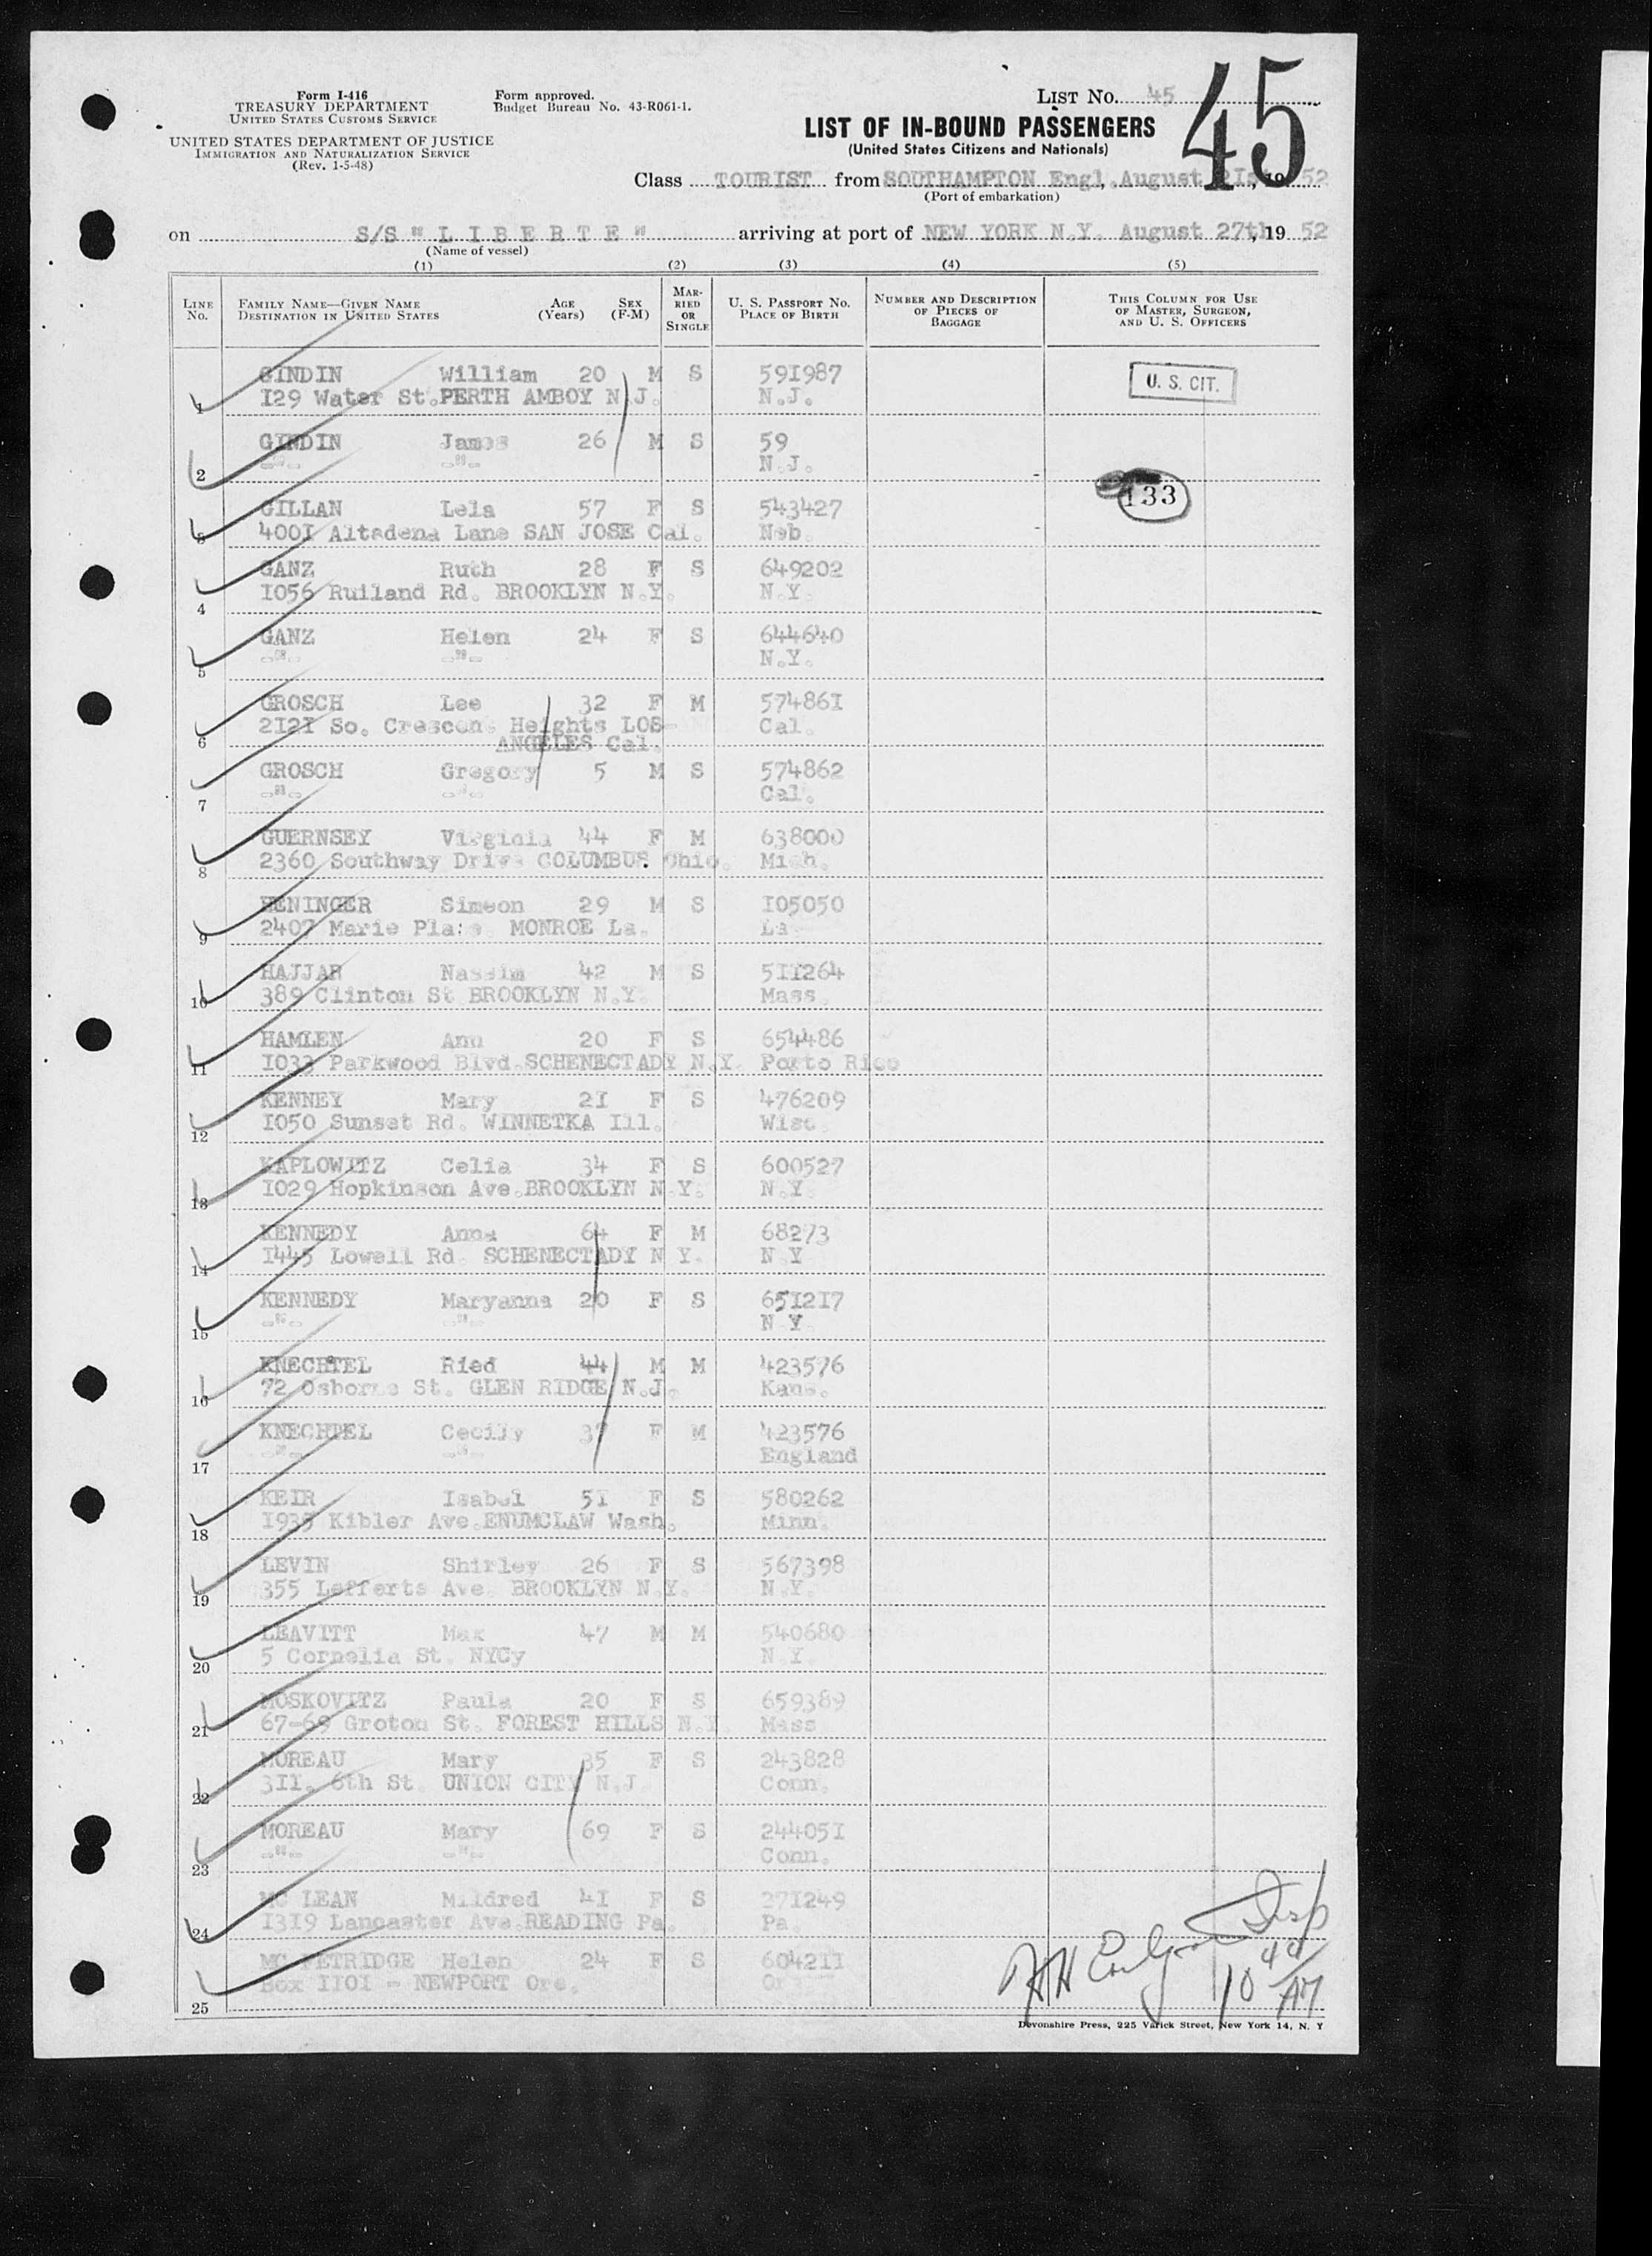 Form I-416
TREASURY DEPARTMENT
UNITED STATES CUSTOMS SERVICE
UNITED STATES DEPARTMENT OF JUSTICE
IMMIGRATION AND NATURALIZATION SERVICE
(Rev. 1-5-48)
Form approved.
Budget Bureau No. 43-R061-1.
LIST NO. 45
45
LIST OF IN-BOUND PASSENGERS
(United States Citizens and Nationals)
Class TOURIST from SOUTHAMPTON Engl, August 2Ist, 19 52
(Port of embarkation)
on S/S " L I B E R T E " arriving at port of NEW YORK N.Y. August 27th, 19 52
(Name of vessel)
(1) (2) (3) (4) (5)
LINE No. FAMILY NAME—GIVEN NAME DESTINATION IN UNITED STATES AGE (Years) SEX (F-M) MARRIED OR SINGLE U. S. PASSPORT NO. PLACE OF BIRTH NUMBER AND DESCRIPTION OF PIECES OF BAGGAGE THIS COLUMN FOR USE OF MASTER, SURGEON, AND U. S. OFFICERS
GINDIN William 20 M S 59I987 U. S. CIT.
1 I29 Water St.PERTH AMBOY N.J. N.J.
GINDIN James 26 M S 59
2 -"- -"- N.J.
133
GILLAN Lela 57 F S 543427
3 400I Altadena Lane SAN JOSE Cal. Neb.
GANZ Ruth 28 F S 649202
4 I056 Rutland Rd. BROOKLYN N.Y. N.Y.
GANZ Helen 24 F S 644640
5 -"- -"- N.Y.
GROSCH Lee 32 F M 57486I
2I2I So. Crescent Heights LOS- Cal.
6 ANGELES Cal.
GROSCH Gregory 5 M S 574862
7 -"- -"- Cal.
GUERNSEY Virginia 44 F M 638000
8 2360 Southway Drive COLUMBUS. Ohio. Mich.
HENINGER Simeon 29 M S I05050
9 2407 Marie Place MONROE La. La.
HAJJAR Nassim 42 M S 5II264
10 389 Clinton St BROOKLYN N.Y. Mass.
HAMLEN Ann 20 F S 654486
11 I033 Parkwood Blvd.SCHENECTADY N.Y. Porto Rico
KENNEY Mary 2I F S 476209
12 I050 Sunset Rd. WINNETKA Ill. Wisc.
KAPLOWITZ Celia 34 F S 600527
13 I029 Hopkinson Ave.BROOKLYN N.Y. N.Y.
KENNEDY Anna 64 F M 68273
14 I445 Lowell Rd. SCHENECTADY N Y. N Y
KENNEDY Maryanna 20 F S 65I2I7
15 -"- -"- N Y.
KNECHTEL Ried 44 M M 423576
16 72 Osborne St. GLEN RIDGE N.J. Kans.
KNECHTEL Cecily 37 F M 423576
17 -"- -"- England
KEIR Isabel 5I F S 580262
18 I935 Kibler Ave.ENUMCLAW Wash. Minn.
LEVIN Shirley 26 F S 567398
19 355 Lefferts Ave. BROOKLYN N.Y. N.Y.
LEAVITT Max 47 M M 540680
20 5 Cornelia St. NYCy N.Y.
MOSKOVITZ Paula 20 F S 659389
21 67-69 Groton St. FOREST HILLS N.Y. Mass
MOREAU Mary 35 F S 243828
22 3II. 6th St. UNION CITY N.J. Conn.
MOREAU Mary 69 F S 24405I
23 -"- -"- Conn.
MC LEAN Mildred 4I F S 27I249
24 I3I9 Lancaster Ave.READING Pa. Pa.
MC PETRIDGE Helen 24 F S 6042II
25 Box II0I - NEWPORT Ore.
Insp
10 40 AM
Devonshire Press, 225 Varick Street, New York 14, N. Y